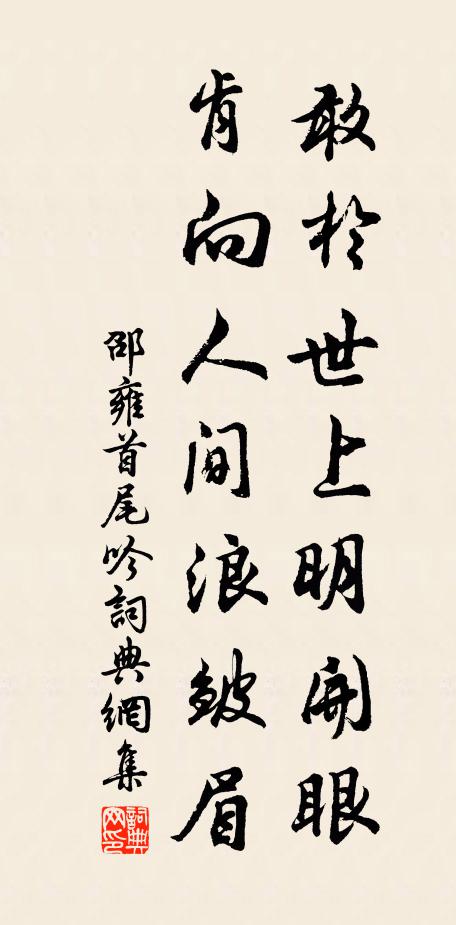 敢於世上明開眼
肯向人間浪皺眉
邵雍首尾吟詞典網集
詞典
网印